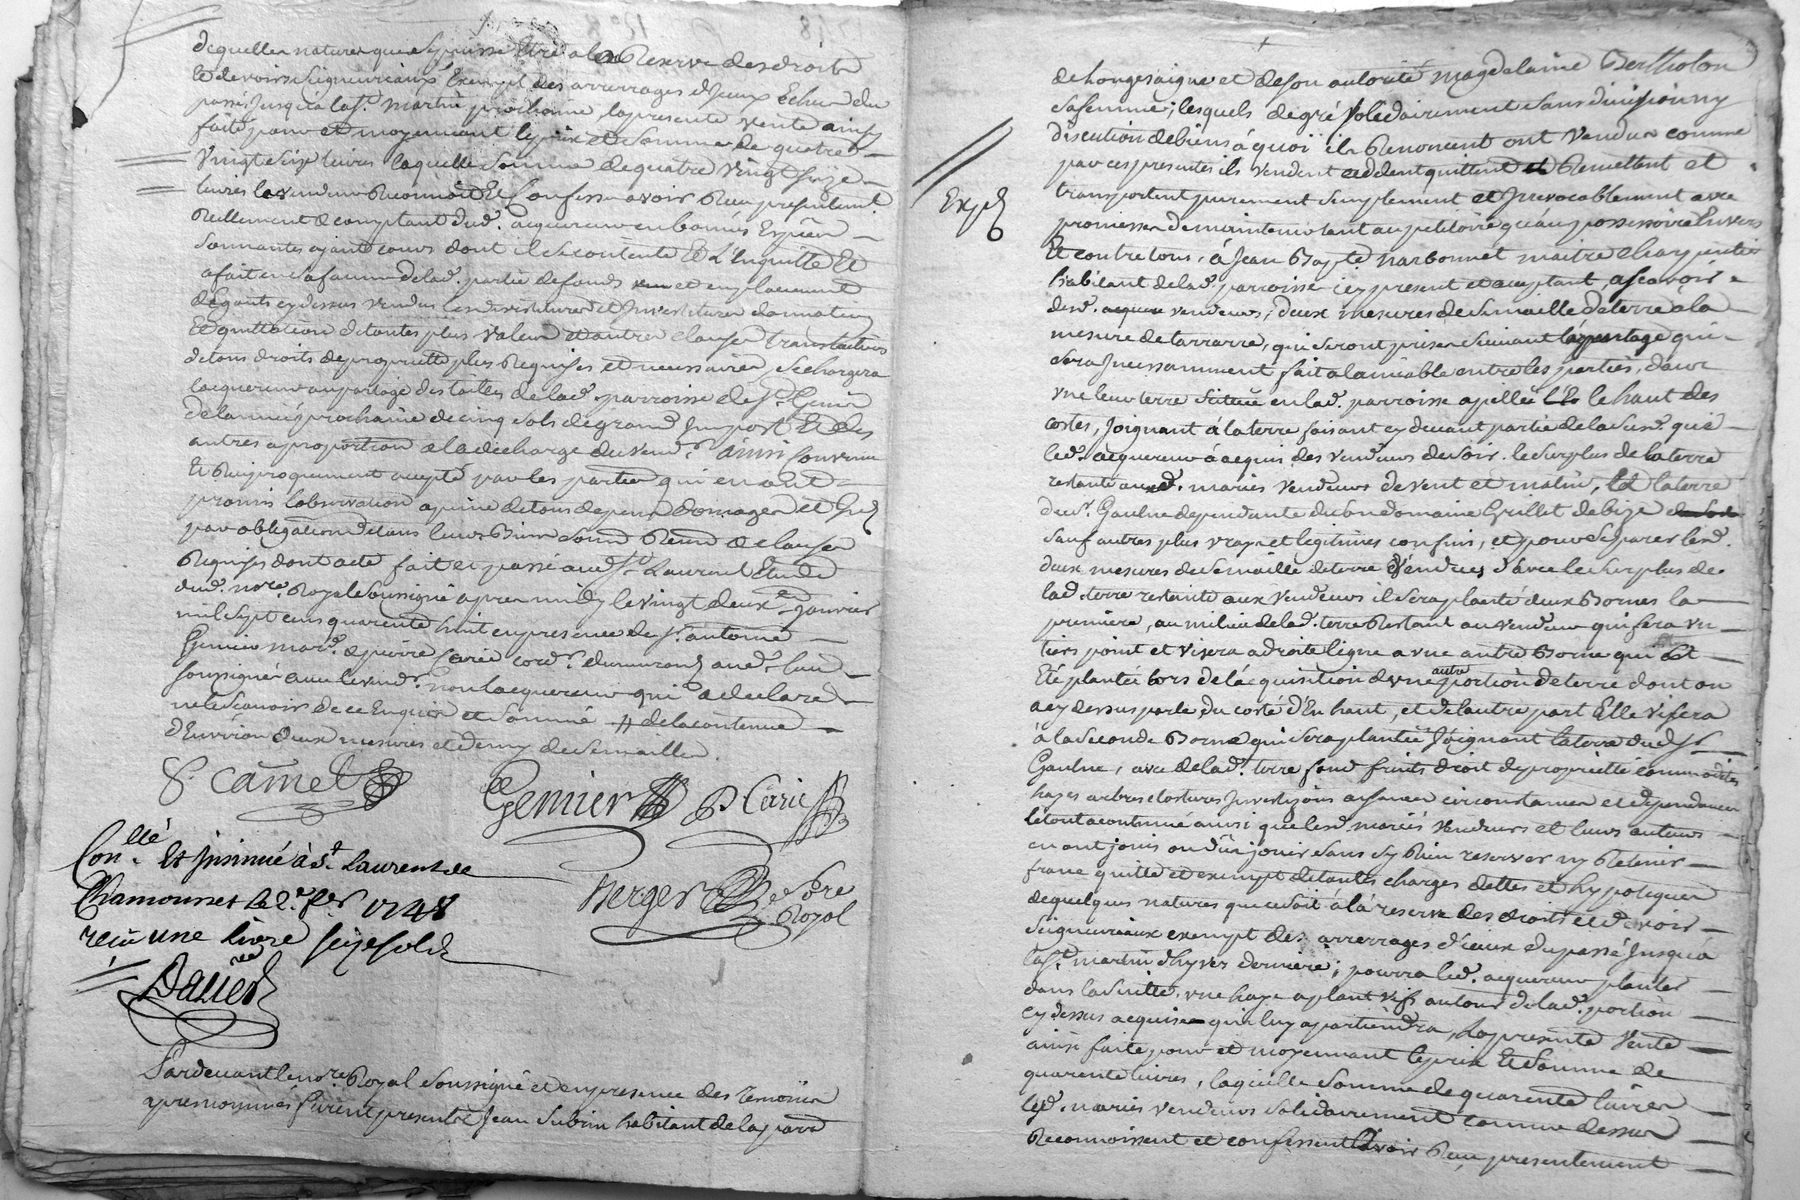 de quelles natures que se puisse être a la Reserve des droits
et devoirs seigneuriaux Exempt des arrerages d'Jceux Echus du
passé Jusqu'à la st. martin prochaine, la presente vente ainsy
faite pour et moyennant le prix et somme de quatre
vingt seize livres laquelle somme de quatre vingt seize
livres le vendeur Reconnoit Et Confesse avoir Reçu presentement
Reellement & comptant dud. acquereur en bonnes Espèces
sonnantes ayant cours dont il se contente Et L'En quitte Et
a fait en sa faveur de lad. partie de fonds et emplacement
degauts cy dessus vendus les devestitures et Jnvestitures donnation
Et quittation de toutes plus valeur et autres clauses translatives
de tous droits de proprietté plus Requises et necessaires, se chargera
lacquereur au partage des tailles de lad. parroisse de st. Genis
de lannée prochaine de cinq sols de grand Jmpost Et des
autres a proportion a la decharge du vend.r ainsi Convenu
Et Reciproquement accepté par les parties qui en ont
promis l'observation a peine de tous depens domages et Jnt.
par obligation de tous leurs Biens soum. Renon. & clauses
Requises dont acte fait et passé aud. st. Laurent Etude
dud. no.re Royal soussigné apres midy le vingt deux.e Janvier
mil sept cens quarente huit en presence de sr. antoine
Genier mar.d & pierre Cerie cord.r demeurans aud. st. Lau.
soussignés avec le vend.r non lacquereur qui a declaré
ne le sçavoir de ce Enquis et sommé # de la contenue
d'Environ deux mesures et demy de semailles
S. Camel
Genier P Cerie
Con.llé Et Jnsinué à St. Laurent de
Chamousset le 2.e fer 1748
reçu une livre seize sols
Berger No.re Royal
Daller
Pardevant le no.re Royal soussigné et en presence des Témoins
apres nommés furent presents Jean Subrin habitant de la parr.
de Longesaigne et de son autorité Magdelaine Bertholon
sa femme; lesquels de gré solidairement sans division ny
discution de biens à quoi ils Renoncent ont Vendu comme
par ces presentes ils vendent cedent quittent Remettent et
transportent purement simplement et Jrrevocablement avec
promesse de maintenir tant au petitoire qu'au possessoire Envers
Et contre tous, à Jean Bapte Narbonnet maitre charpentier
habitant de lad. parroisse icy present et acceptant, ascavoir
desd. vendeurs, deux mesures de semaille de terre a la
mesure de tarrarre, qui seront prises suivant le partage qui
sera Jncessamment fait a lamiable entre les parties, dans
une leur terre située en lad. parroisse apellée le haut des
costes, Joignant à la terre faisant cy devant partie de la susd. que
led. acquereur a acquis des vendeurs de soir. le surplus de la terre
restante auxd. mariés vendeurs de vent et matin, la terre
du sr. Gaulne dependante du domaine Grillet de bize
sauf autres plus vrays et legitimes confins, et pour separer lesd.
deux mesures de semaille de terre Vendues d'avec le surplus de
lad. terre restante aux vendeurs il sera planté deux Bornes la
premiere, au milieu de lad. terre Restant au vendeur qui fera un
tiers point et visera a droite ligne a une autre Borne qui est
Eté plantée lors de l'acquisition d'une autre portion de terre dont on
a cy dessus parlé du costé d'En haut, et de lautre part Elle visera
à la seconde Borne qui sera plantée Joignant la terre dud. sr.
Gaulne, avec de lad. terre fond fruits droit de proprietté commodités
hayes arbres clostures Jnvestizons aisances circonstances et dependances
le tout a continué ainsi que lesd. mariés Vendeurs et leurs auteurs
en ont jouis ou dû jouir sans sy Rien reserver ny Retenir
franc quitte et exempt de toutes charges dettes et hypoteques
de quelques natures que ce soit à la reserve des droits et devoirs
seigneuriaux exempt des arrerrages d'iceux du passé Jusqu'a
la st. martin d'hyver derniere; pourra led. acquereur planter
dans la suitte, une haye a plant vifs autour de lad. portion
cy dessus acquise qui luy apartiendra, la presente Vente
ainsi faite pour et moyennant le prix Et somme de
quarente livres, laquelle somme de quarente livres
lesd. mariés vendeurs solidairement comme dessus
Reconnoissent et confessent avoir Reçu presentement
Exped